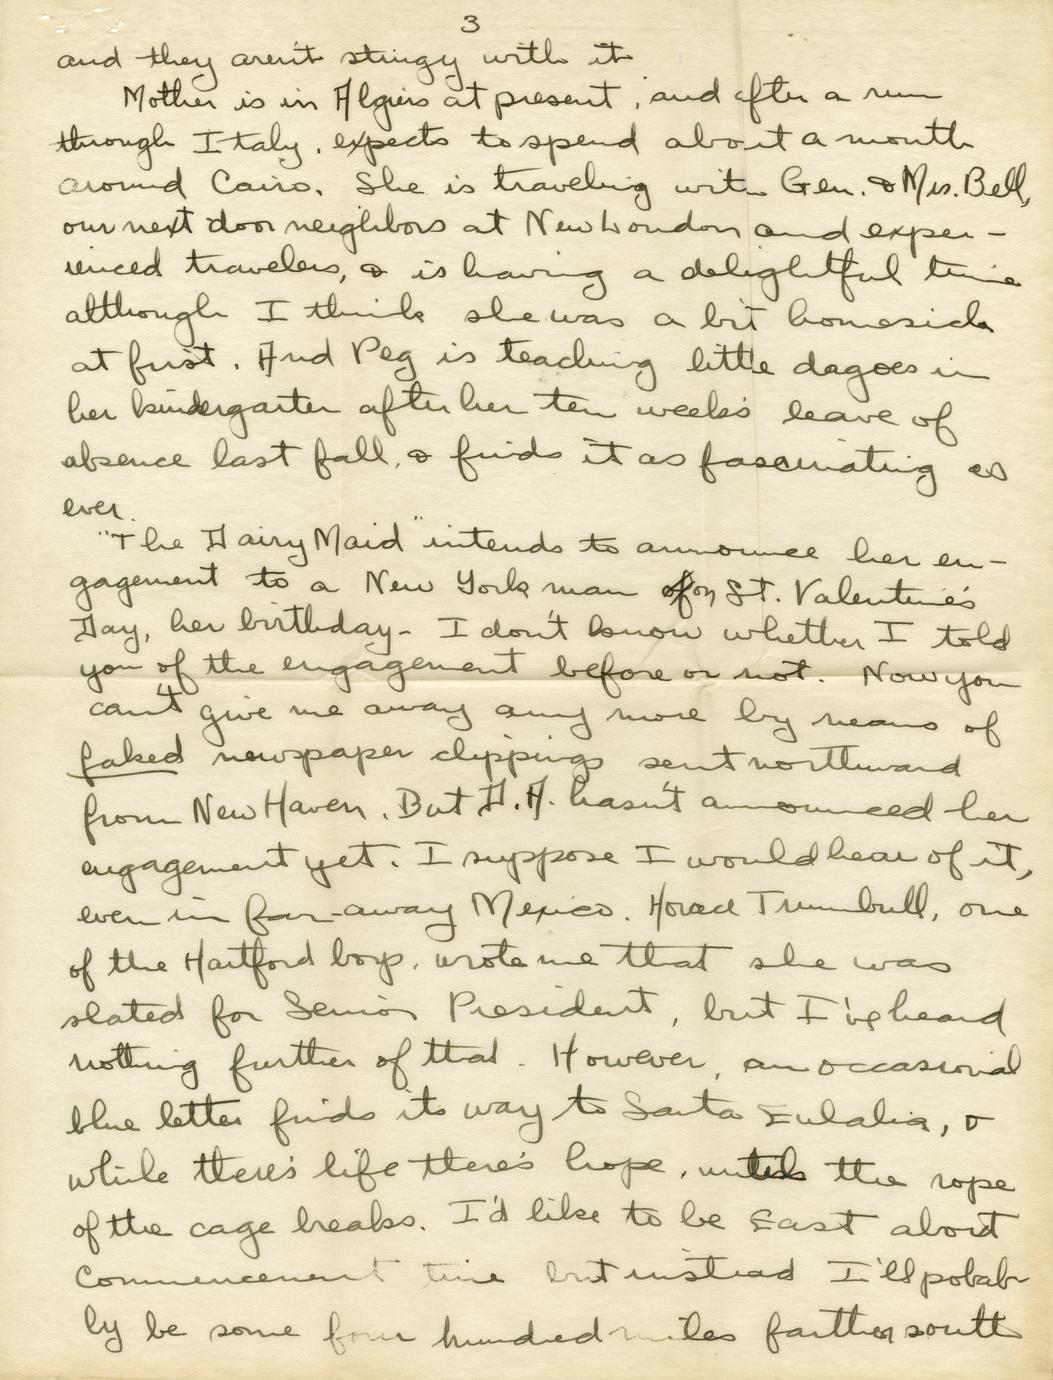 3
and they aren't stingy with it
Mother is in Algiers at present, and after a run
through Italy, expects to spend about a month
around Cairo. She is traveling with Gen. & Mrs. Bell,
our next door neighbors at New London and exper-
ienced travelers, & is having a delightful time
although I think she was a bit homesick
at first. And Peg is teaching little dagoes in
her kindergarten after her ten weeks leave of
absence last fall, & finds it as fascinating as
ever.
"The Dairy Maid" intends to announce her en-
gagement to a New York man on St. Valentine's
Day, her birthday- I don't know whether I told
you of the engagement before or not. Now you
can't give me away any more by means of
faked newspaper clippings sent northward
from New Haven. But D.A. hasn't announced her
engagement yet. I suppose I would hear of it,
even in far-away Mexico. Horace Trumbull, one
of the Hartford boys, wrote me that she was
slated for Senior President, but I've heard
nothing further of that. However, an occasional
blue letter finds its way to Santa Eulalia, &
while there's life there's hope, until the rope
of the cage breaks. I'd like to be East about
Commencement time but instead I'll pobab-
ly be some four hundred miles farther south